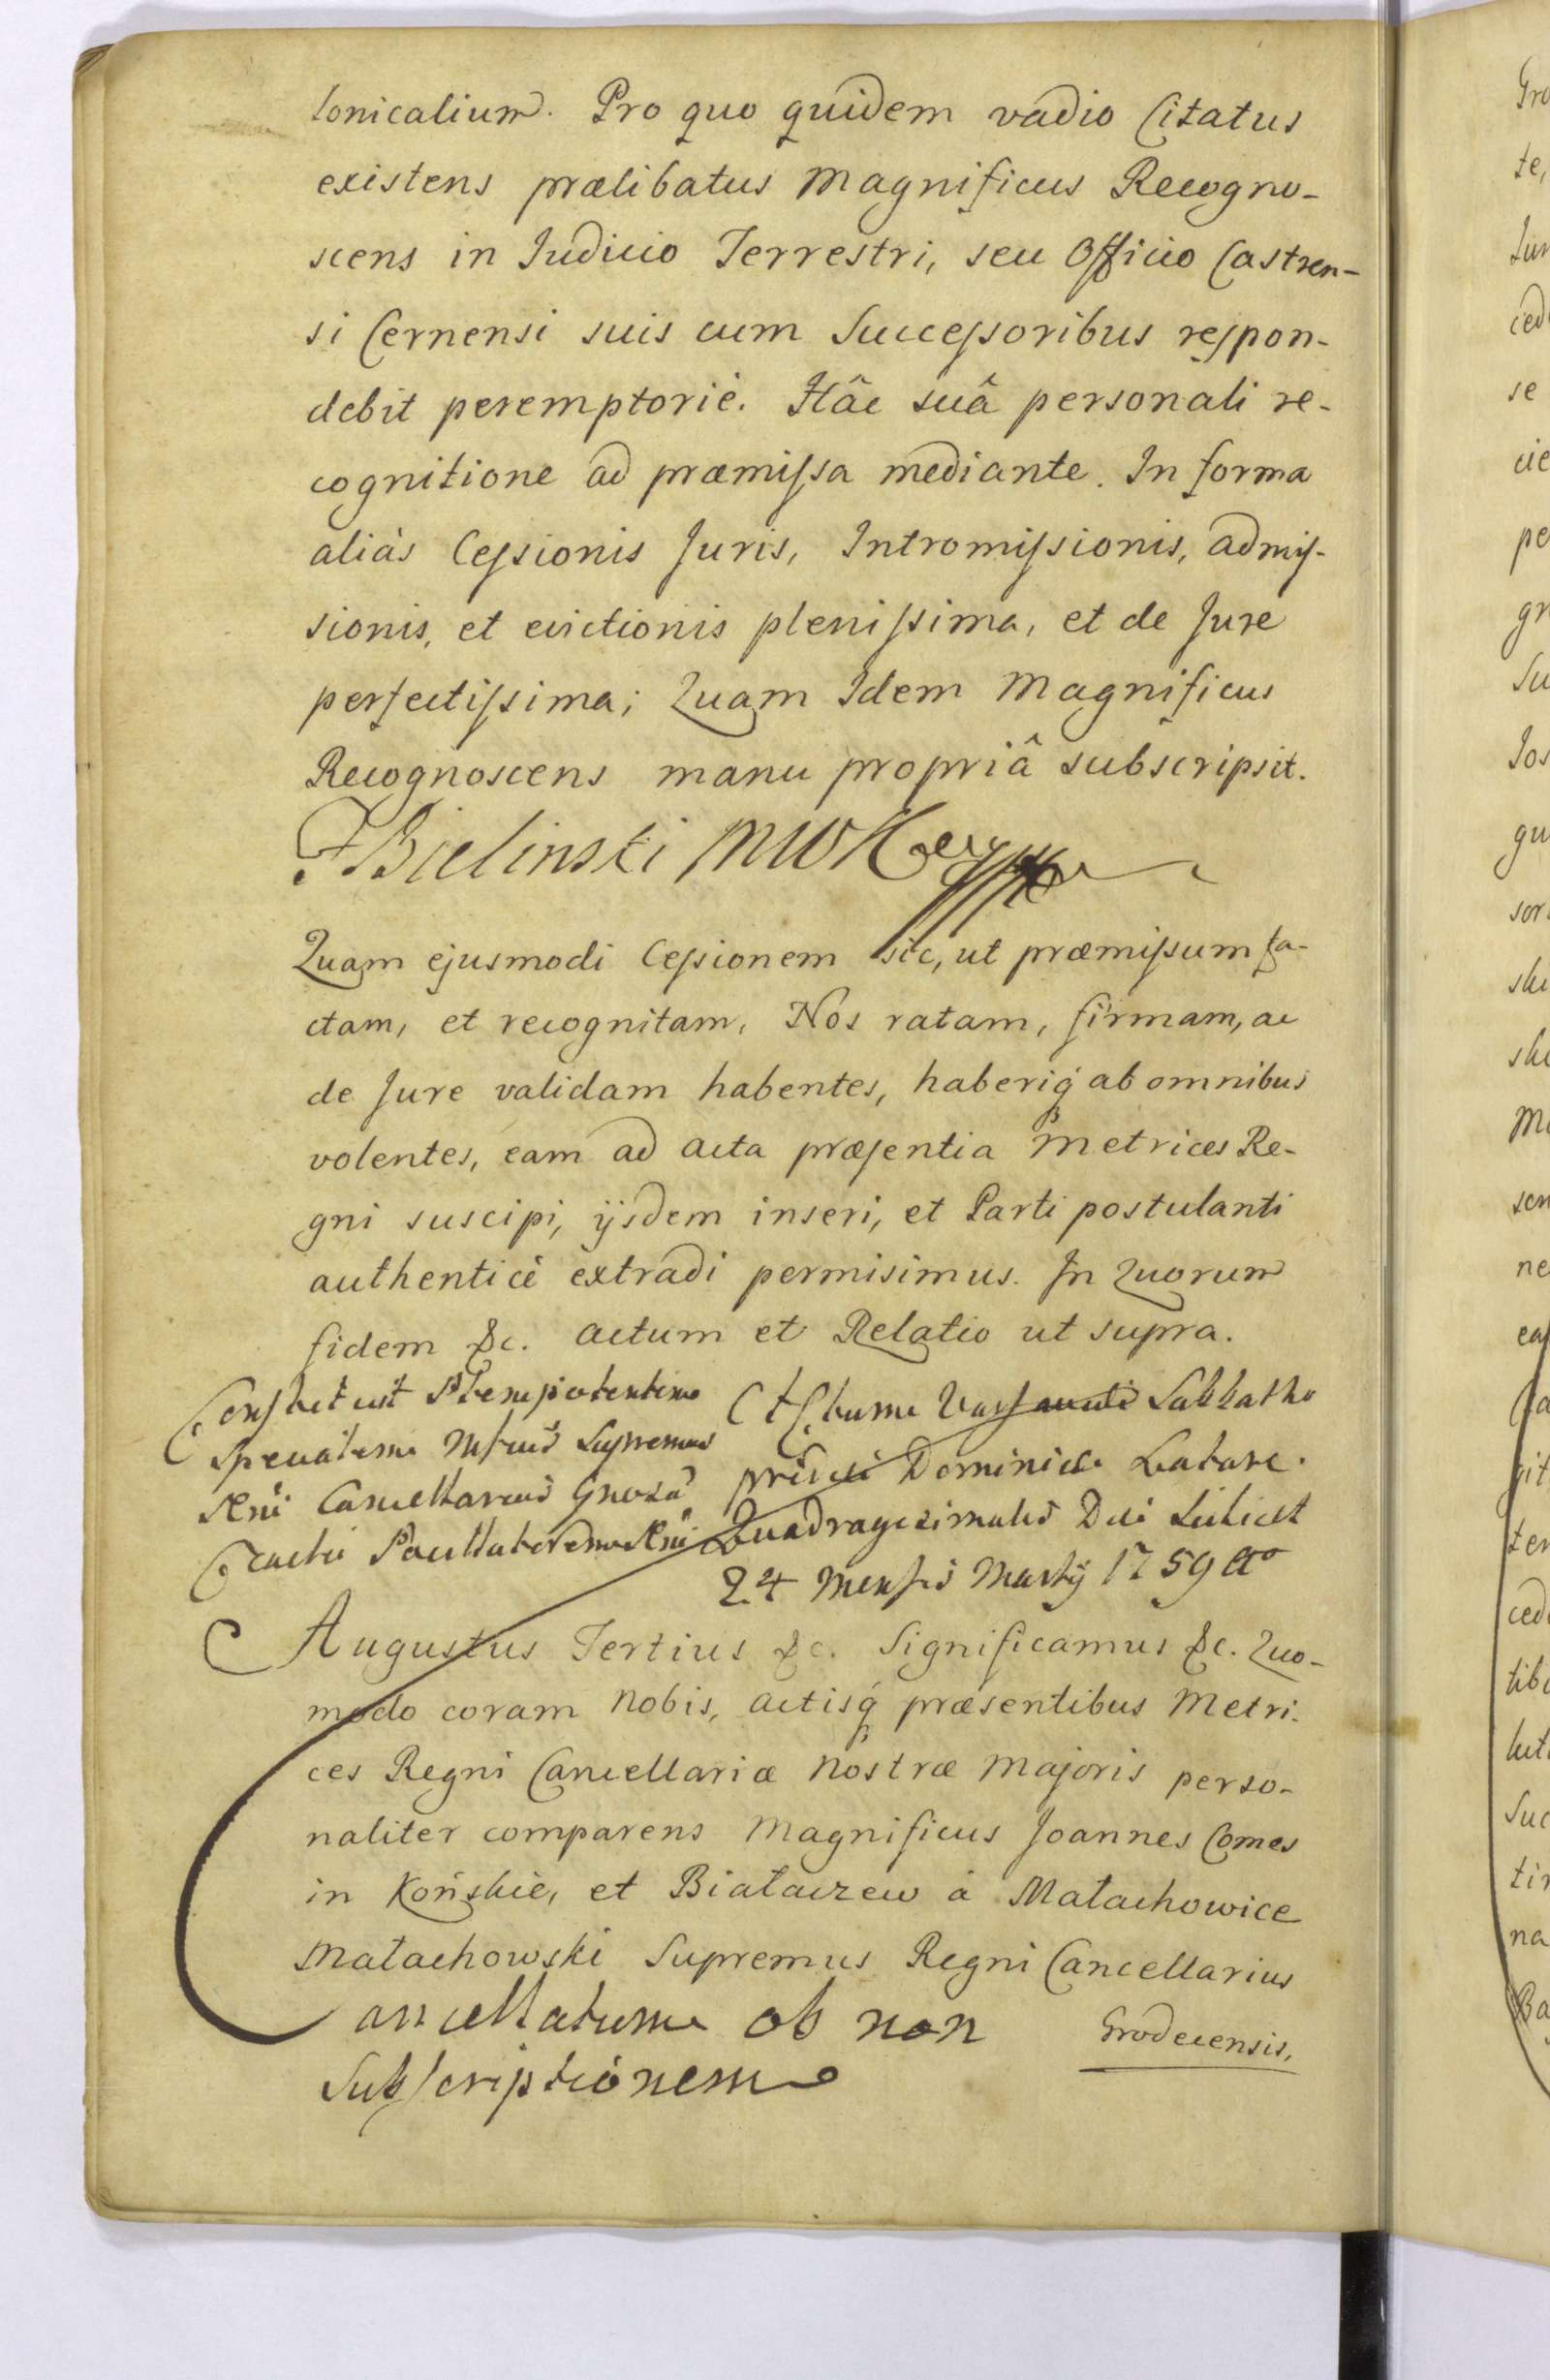 lonicalium. Pro quo quidem vadio Citatus
existens prælibatus Magnificus Recogno-
scens in Judicio Terrestri, seu Officio Castren-
si Cernensi suis cum Successoribus respon-
debit peremptoriè. Hâc suâ personali re-
cognitione ad præmissa mediante. In forma
aliàs Cessionis Juris, Intromissionis, admis-
sionis, et evictionis plenissima, et de Jure
perfectissima; Quam Idem Magnificus
Recognoscens manu propriâ subscripsit.
FBielinski MWK
Quam ejusmodi Cessionem sic, ut præmissum fa-
ctam, et recognitam, Nos ratam, firmam, ac
de Jure validam habentes, haberiq́ ab omnibus
volentes, eam ad acta præsentia Metrices Re-
gni suscipi, ijsdem inseri, et Parti postulanti
authenticè extradi permisimus. In Quorum
fidem &c. actum et Relatio ut supra.
Supremus Sabbatho
Cancellarius pridie Dominicæ Lætare
Quadragesimalis Die
24 Mensis Martij 1759
Augustus Tertius &c. Significamus &c. Quo-
modo coram Nobis, actisq́ præsentibus Metri-
ces Regni Cancellariæ Nostræ Majoris perso-
naliter comparens Magnificus Joannes Comes
in Końskiè, et Białaczew à Małachowice
Małachowski Supremus Regni Cancellarius
Cancellatum ob non
Grodecensis,
Subscriptionem